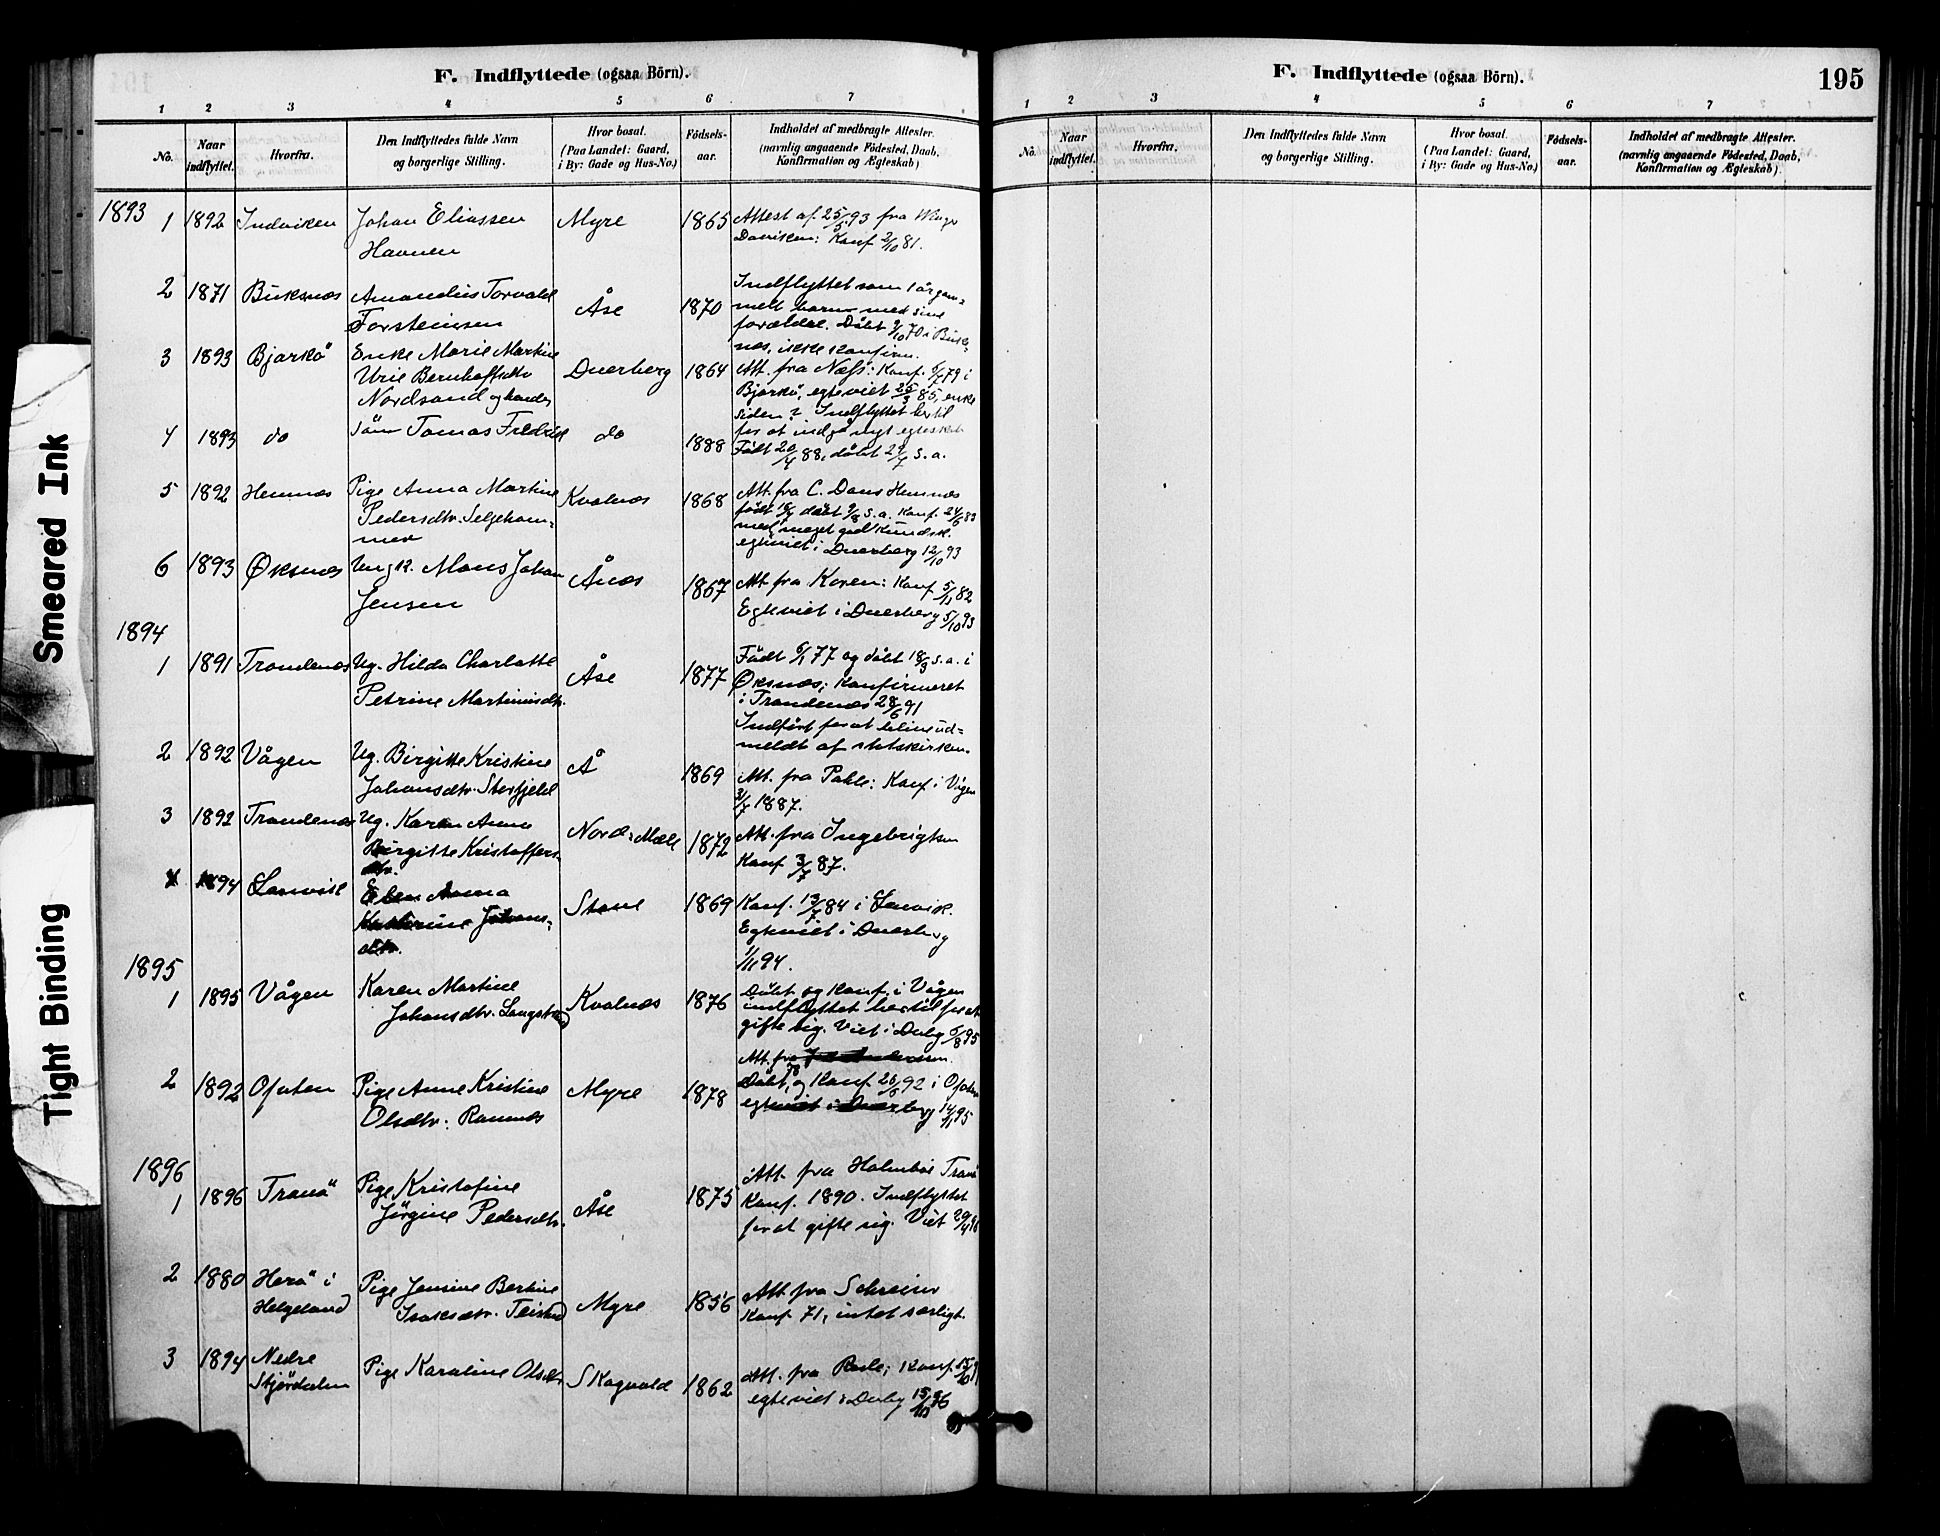 F. Indflyttede (ogsaa Börn).
1 2 3 4 5 6 7
No. Naar indflyttet. Hvorfra. Den Indflyttedes fulde Navn og borgerlige Stilling. Hvor bosat. (Paa Landet: Gaard, i By: Gade og Hus-No.) Födsels-aar. Indholdet af medbragte Attester. (navnlig angaaende Födested, Daab, Konfirmation og Ægteskab)
1893
1 1892 Indviken Johan Eliassen Myre 1865 Attest af 25/5 93 fra
Havnen Konf 2/10 81.
2 1871 Buksnæs Amandus Torvald Åse 1870 Indflyttet som 1 årgam=
Torsteinsen melt barn med sine
forældre. Döbt 9/10 70 i Buks=
næs, ikke konfirm.
3 1893 Bjarkö Enke Marie Martine Dverberg 1864 Att. fra Næss: Konf. 6/7 79 i
Urie Bernhoffsdtr Bjarkö, egteviet 25/3 85, enke
Nordsand og hendes siden ? Indflyttet hertil
4 1893 do sön Tomas Fredrik do 1888 for at indgå nyt egteskab
Födt 20/4 88, döbt 29/7 s. a.
5 1892 Hemnæs Pige Anna Martine Kvalnæs 1868 Att. fra C. Dans Hemnæs
Pedersdtr. Seljeham= födt 18/4 döbt 9/8 s. a. Konf. 24/6 83
mer med meget god kundsk.
egteviet i Dverberg 12/10 93
6 1893 Øksnæs Ungk. Mons Johan Ånæs 1867 Att fra Koren: Konf 5/11 82
Jensen Egteviet i Dverberg 5/10 93
1894
1 1891 Trondenæs Ug. Hilda Charlotte Åse 1877 Födt 6/1 77 og döbt 18/3 s. a. i
Petrine Martinusdtr. Øksnæs; konfirmeret
i Trondenæs 28/6 91
Indfört for at bline ud=
meldt af statskirken.
2 1892 Vågen Ug. Birgitte Kristine Å 1869 Att. fra Pahle: Konf i Vågen
Johansdtr. 3/7 1887.
3 1892 Trondenæs Ug. Karen Anna Nord: Mæle 1872 Att. fra Ingebrigtsen
Birgitte Kristoffers= Konf 3/7 87.
dtr.
4 1894 Anna Stave 1869 Konf. 13/7 84 i
Johans= Egteviet i Dverberg
dtr. 1/11 94.
1895
1 1895 Vågen Karen Martine Kvalnæs 1876 Döbt og Konf. i Vågen
Johansdtr. indflyttet hertil for at
gifte sig. Viet i Dvbg 6/8 95
Att. fra
2 1892 Ofoten Pige Anne Kristine Myre 1878 Döbt, og Konf. 26/6 92 i Ofoten
Olsdtr. Ramnæs egteviet i Dverberg 14/11 95
1896
1 1896 Tranö Pige Kristofine Åse 1875 Att. fra Holmboe Tranö
Jörgine Pedersdtr. Konf. 1890. Indflyttet
for at gifte sig. Viet 29/4 96
2 1880 Herö i Pige Jensine Bertine Myre 1856 Att fra Schreiner
Helgeland Isaksdtr. Konf. 71, intet særligt.
3 1894 Nedre Pige Karoline Olsdtr Skogvold 1862 Att. fra
Stjördalen egteviet i Dvbg 15/10 96
F. Indflyttede (ogsaa Börn). 195
1 2 3 4 5 6 7
No. Naar indflyttet. Hvorfra. Den Indflyttedes fulde Navn og borgerlige Stilling. Hvor bosat. (Paa Landet: Gaard, i By: Gade og Hus-No.) Födsels-aar. Indholdet af medbragte Attester. (navnlig angaaende Födested, Daab, Konfirmation og Ægteskab)
Smeared Ink
Tight Binding